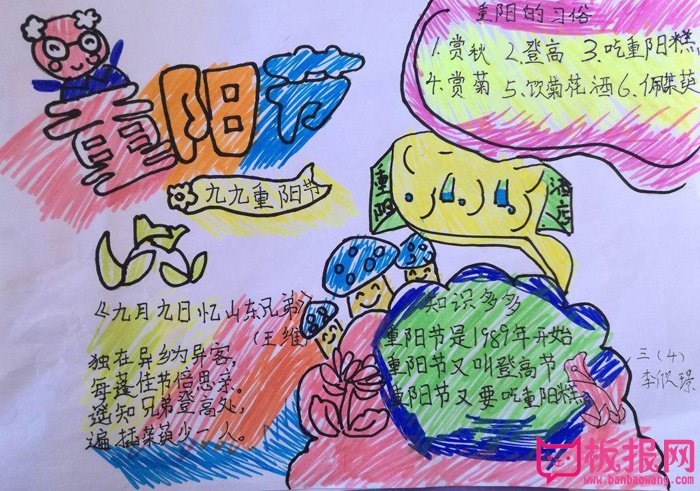 重阳的习俗
1.赏秋 2.登高 3.吃重阳糕
4.赏菊 5.饮菊花酒 6.佩茱萸
重阳节
九九重阳节
重阳
酒店
《九月九日忆山东兄弟》
(王维)
独在异乡为异客,
每逢佳节倍思亲。
遥知兄弟登高处,
遍插茱萸少一人。
知识多多
重阳节是1989年开始
重阳节又叫登高节
重阳节又要吃重阳糕
三(4)
李
板报网
www.banbaowang.com